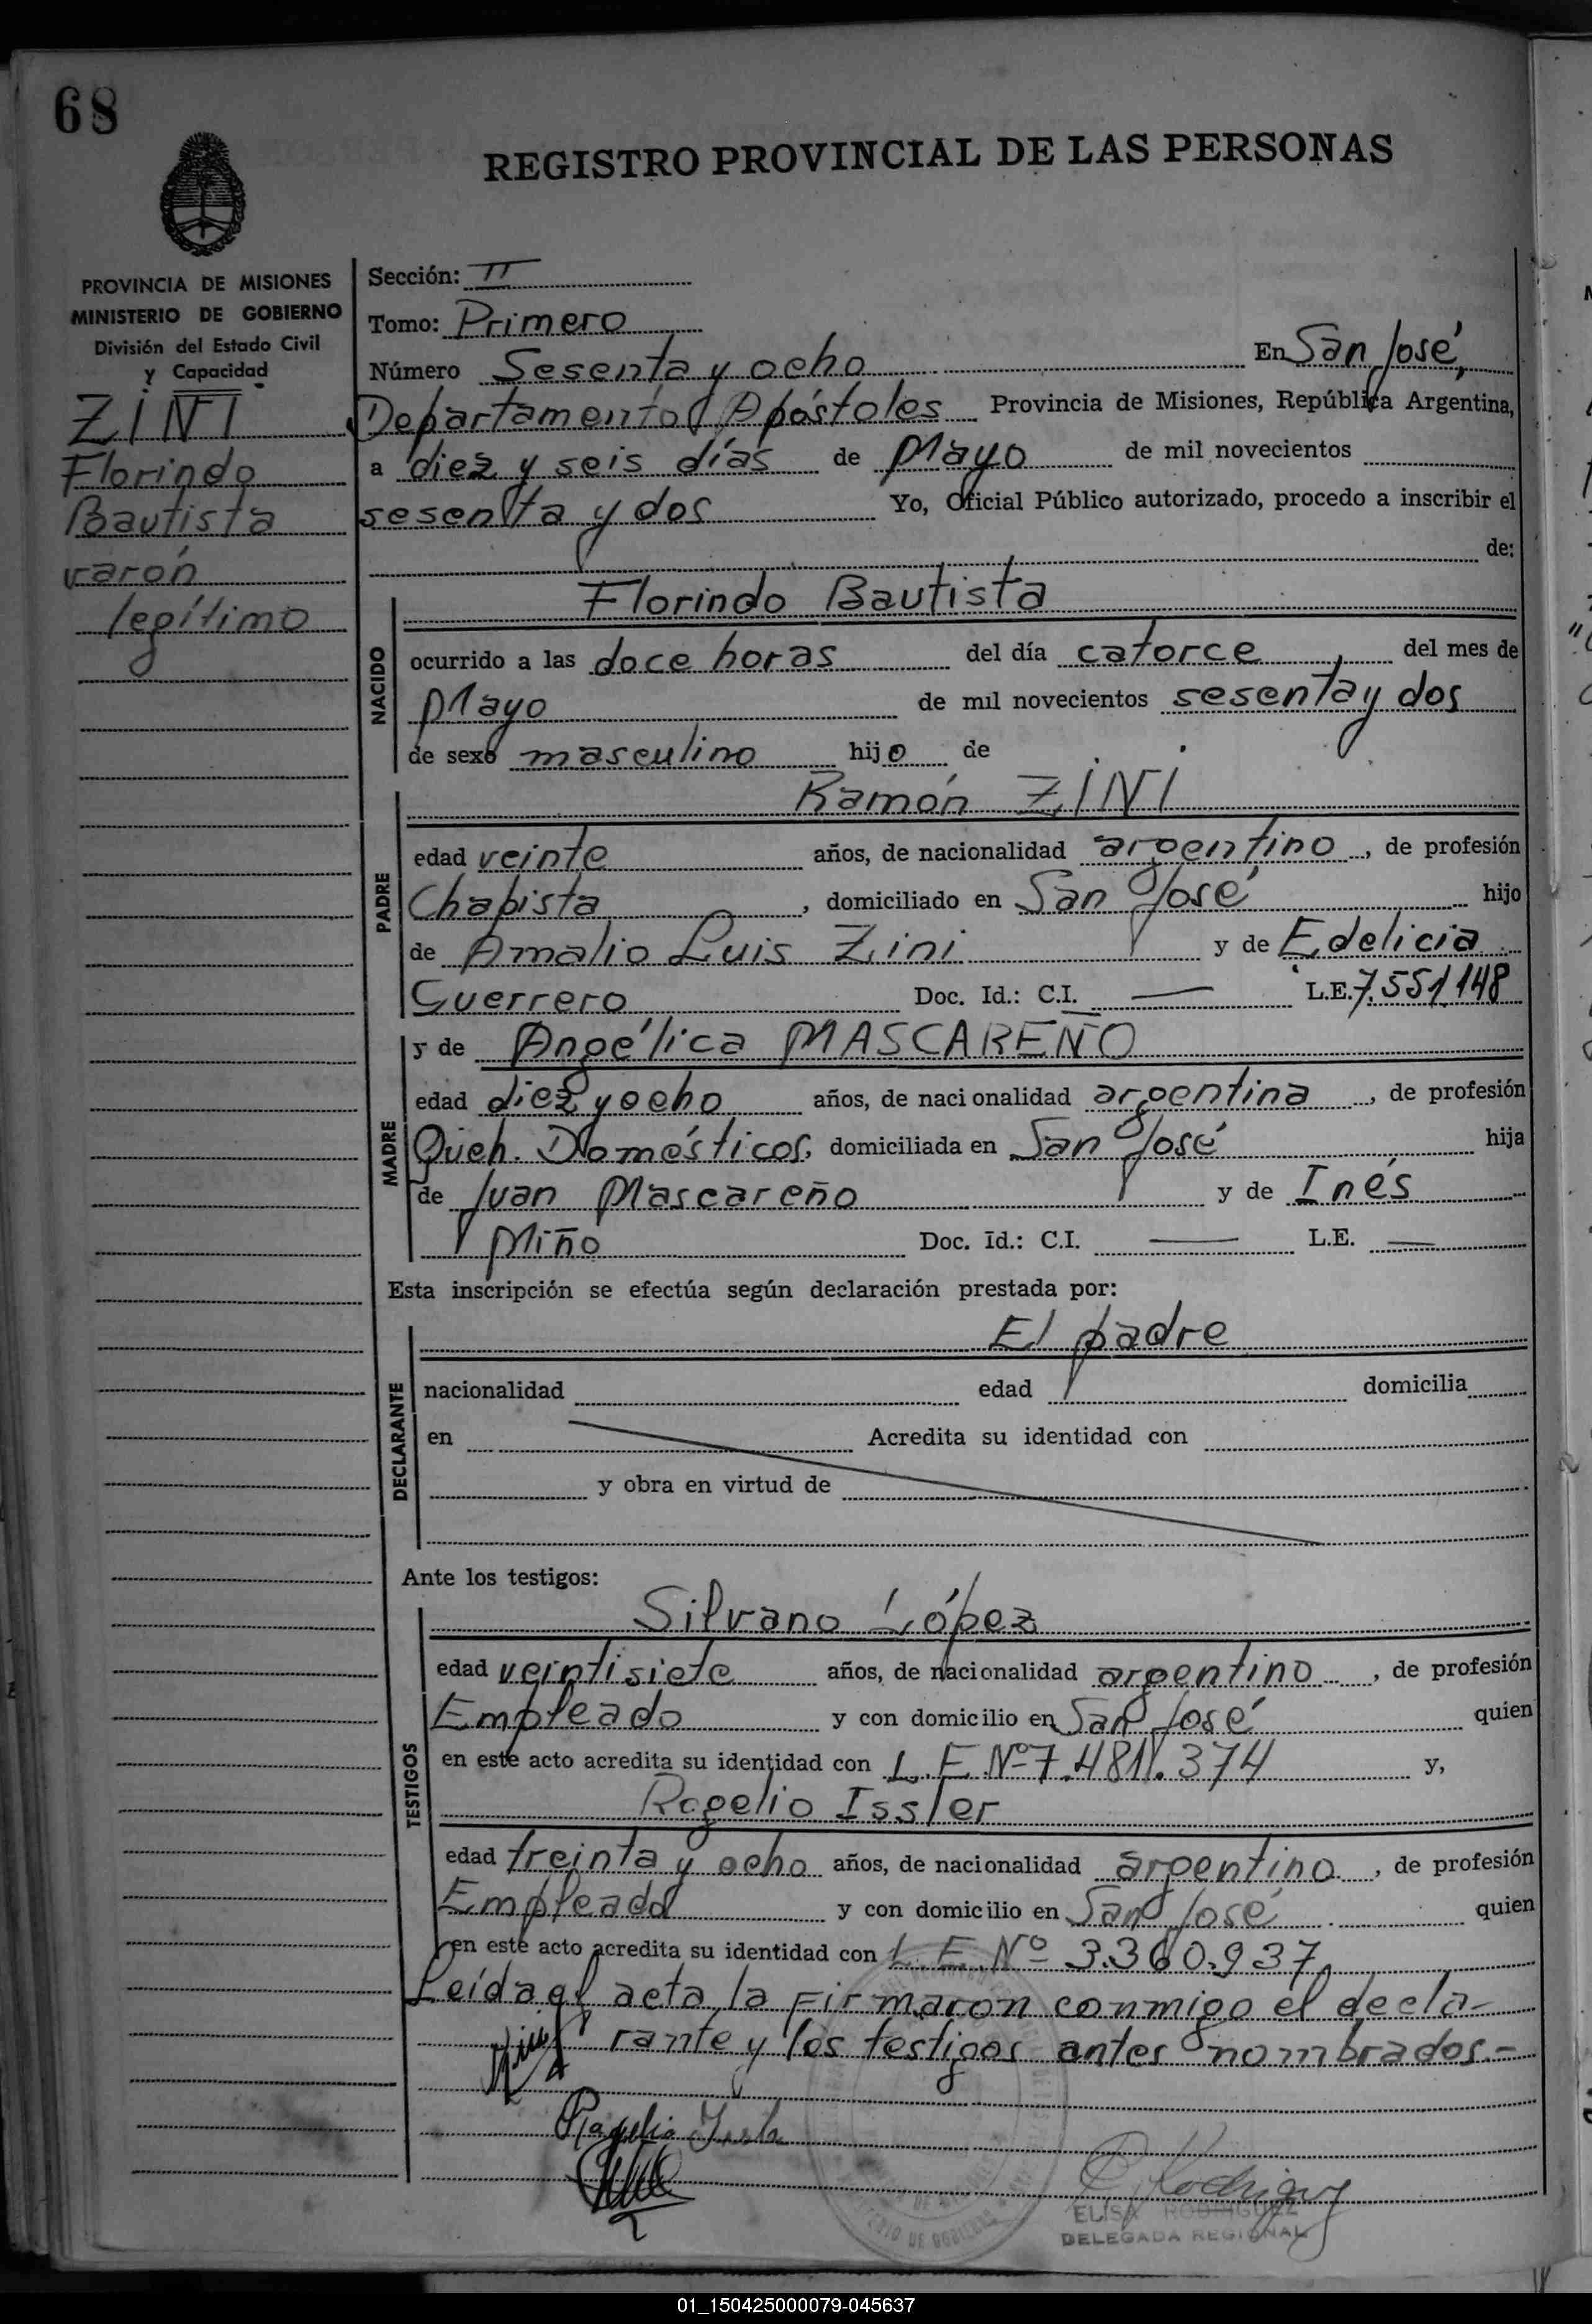 68
REGISTRO PROVINCIAL DE LAS PERSONAS
PROVINCIA DE MISIONES
MINISTERIO DE GOBIERNO
División del Estado Civil
y Capacidad
ZINI
Florindo
Bautista
varón
legítimo
Sección: II
Tomo: Primero
Número Sesenta y ocho En San José,
Departamento Apóstoles Provincia de Misiones, República Argentina,
a diez y seis días de Mayo de mil novecientos
sesenta y dos Yo, Oficial Público autorizado, procedo a inscribir el
de:
NACIDO
Florindo Bautista
ocurrido a las doce horas del día catorce del mes de
Mayo de mil novecientos sesenta y dos
de sexo masculino hijo de
PADRE
Ramón ZINI
edad veinte años, de nacionalidad argentino, de profesión
Chapista, domiciliado en San José hijo
de Amalio Luis Zini y de Edelicia
Guerrero Doc. Id.: C.I. — L.E. 7.551.148
MADRE
y de Angélica MASCAREÑO
edad diez y ocho años, de nacionalidad argentina, de profesión
Queh. Domésticos, domiciliada en San José hija
de Juan Mascareño y de Inés
Miño Doc. Id.: C.I. — L.E. —
Esta inscripción se efectúa según declaración prestada por:
DECLARANTE
El padre
nacionalidad edad domicilia
en Acredita su identidad con
y obra en virtud de
Ante los testigos:
TESTIGOS
Silvano López
edad veintisiete años, de nacionalidad argentino, de profesión
Empleado y con domicilio en San José quien
en este acto acredita su identidad con L.E. Nº 7.481.374 y,
Rogelio Issler
edad treinta y ocho años, de nacionalidad argentino, de profesión
Empleado y con domicilio en San José quien
en este acto acredita su identidad con L.E. Nº 3.360.937
Leída el acta la firmaron conmigo el decla-
rante y los testigos antes nombrados.-
Rodriguez
ELISA RODRIGUEZ
DELEGADA REGIONAL
01_150425000079-045637